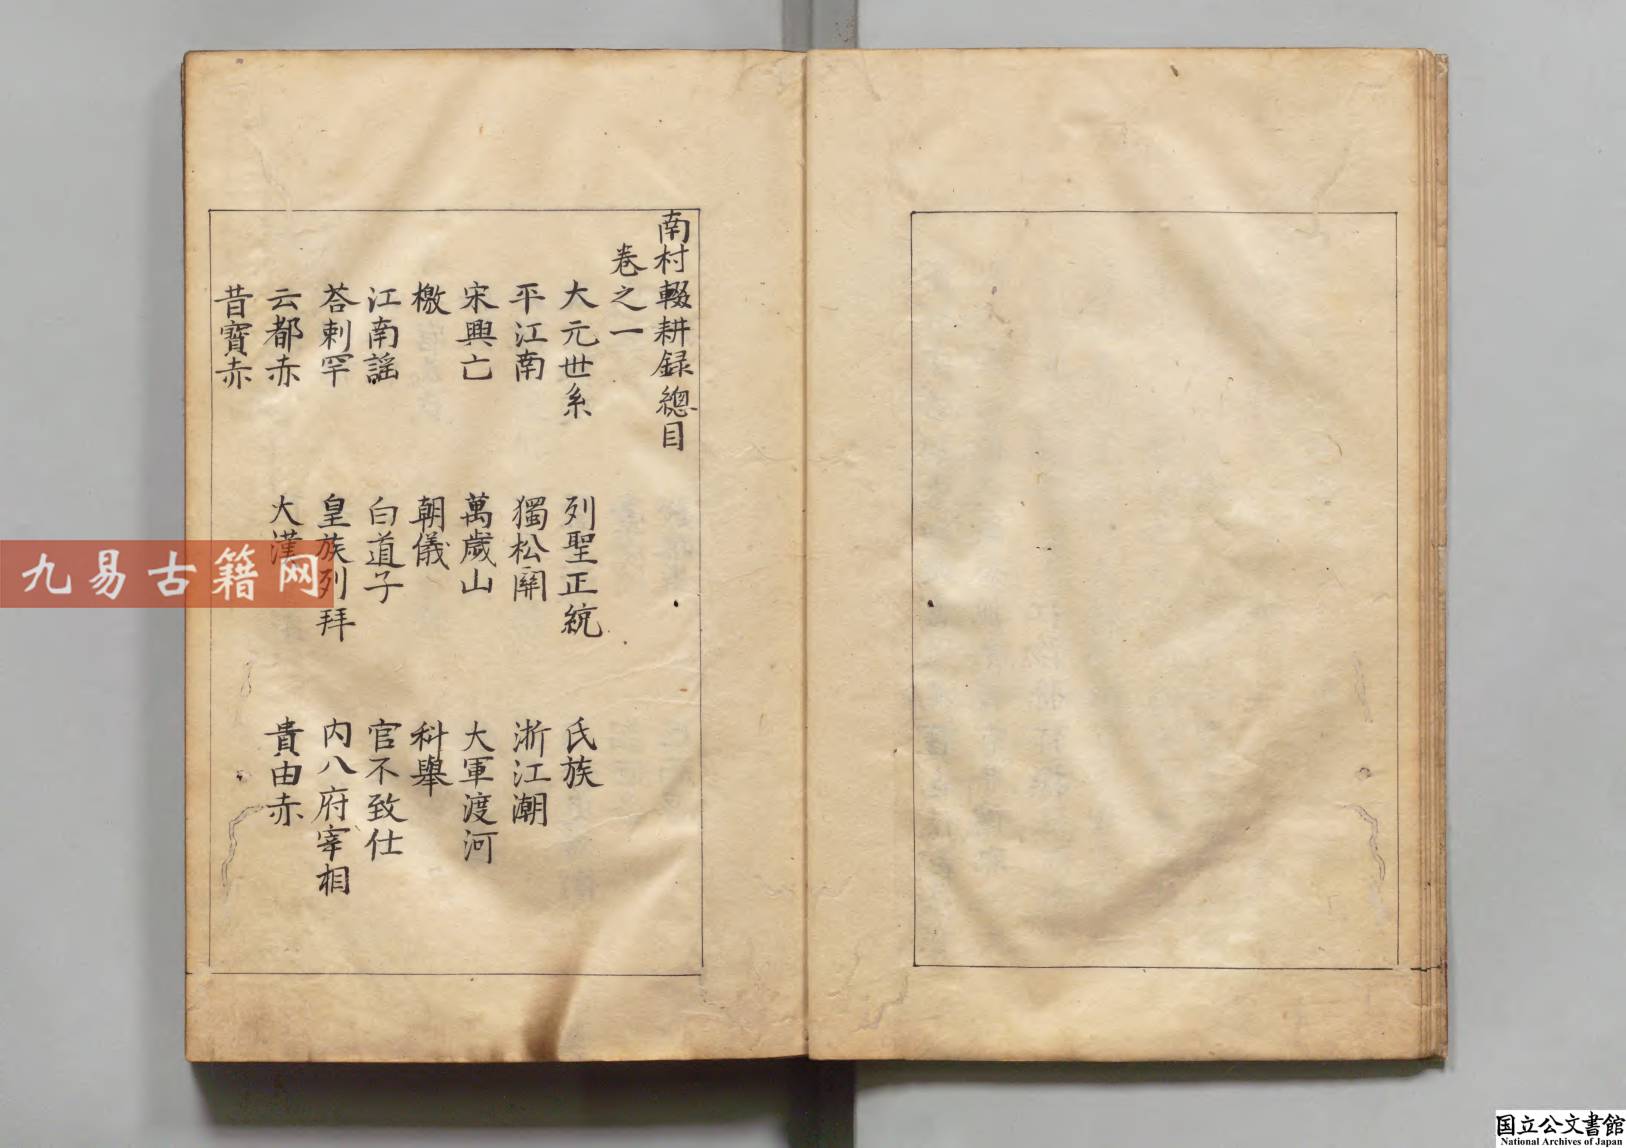 南村輟耕録總目
卷之一
大元世系 列聖正統 氏族
平江南 獨松關 浙江潮
宋興亡 萬歲山 大軍渡河
檄 朝儀 科舉
江南謡 白道子 官不致仕
荅剌罕 皇族列拜 内八府宰相
云都赤 大漢 貴由赤
昔寶赤
九易古籍网
国立公文書館
National Archives of Japan